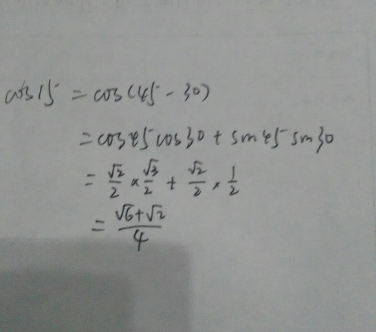 cos15 = cos(45 - 30)
= cos45 cos30 + sin45 sin30
= √2/2 × √3/2 + √2/2 × 1/2
= (√6+√2)/4